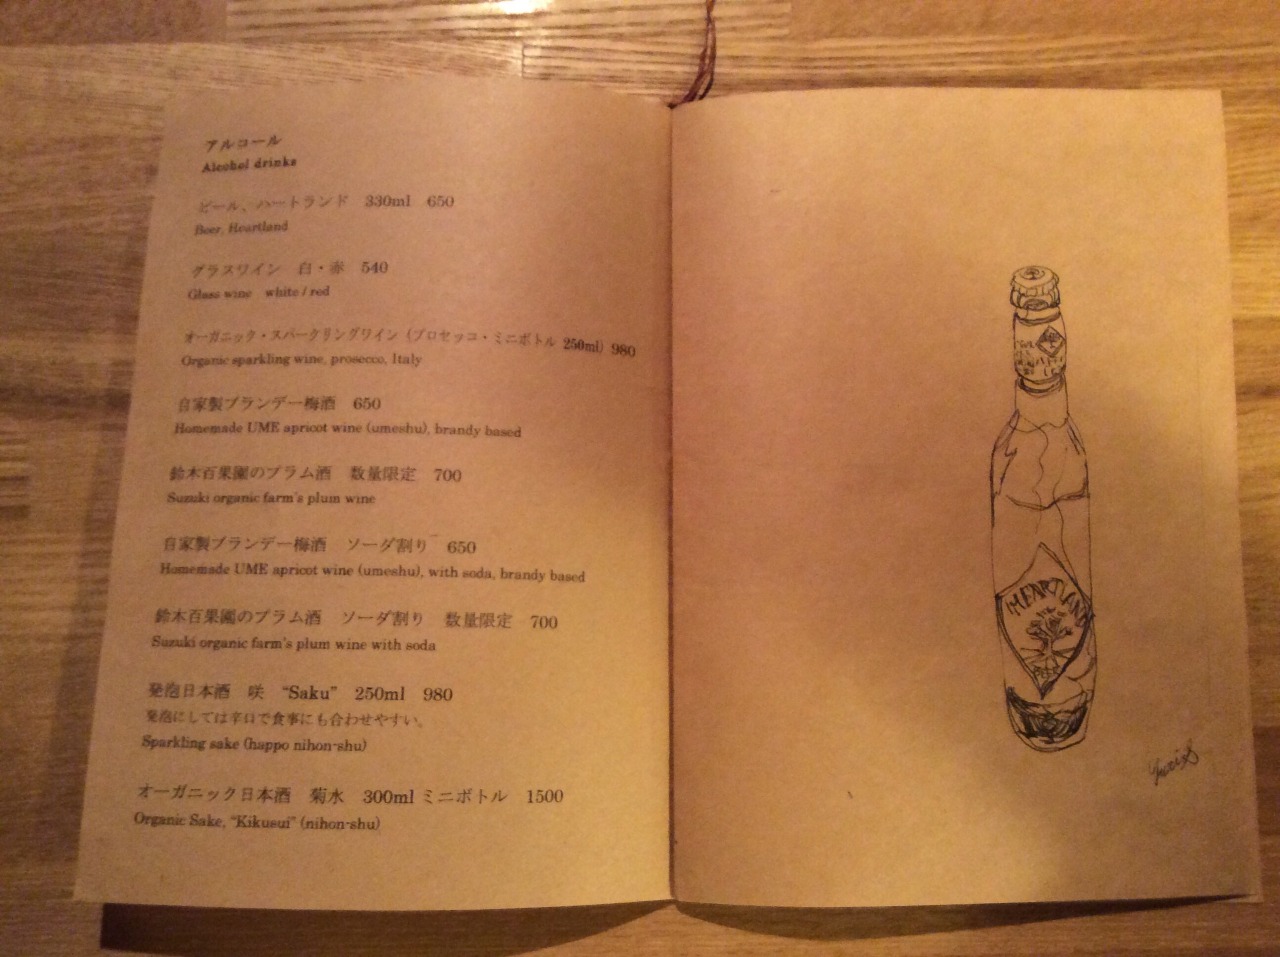 アルコール
Alcohol drinks
ビール、ハートランド 330ml 650
Beer, Heartland
グラスワイン 白・赤 540
Glass wine white / red
オーガニック・スパークリングワイン (プロセッコ・ミニボトル 250ml) 980
Organic sparkling wine, prosecco, Italy
自家製ブランデー梅酒 650
Homemade UME apricot wine (umeshu), brandy based
鈴木百果園のプラム酒 数量限定 700
Suzuki organic farm's plum wine
自家製ブランデー梅酒 ソーダ割り 650
Homemade UME apricot wine (umeshu), with soda, brandy based
鈴木百果園のプラム酒 ソーダ割り 数量限定 700
Suzuki organic farm's plum wine with soda
発泡日本酒 咲 “Saku” 250ml 980
発泡にしては辛口で食事にも合わせやすい。
Sparkling sake (happo nihon-shu)
オーガニック日本酒 菊水 300ml ミニボトル 1500
Organic Sake, “Kikusui” (nihon-shu)
HEARTLAND
BEER